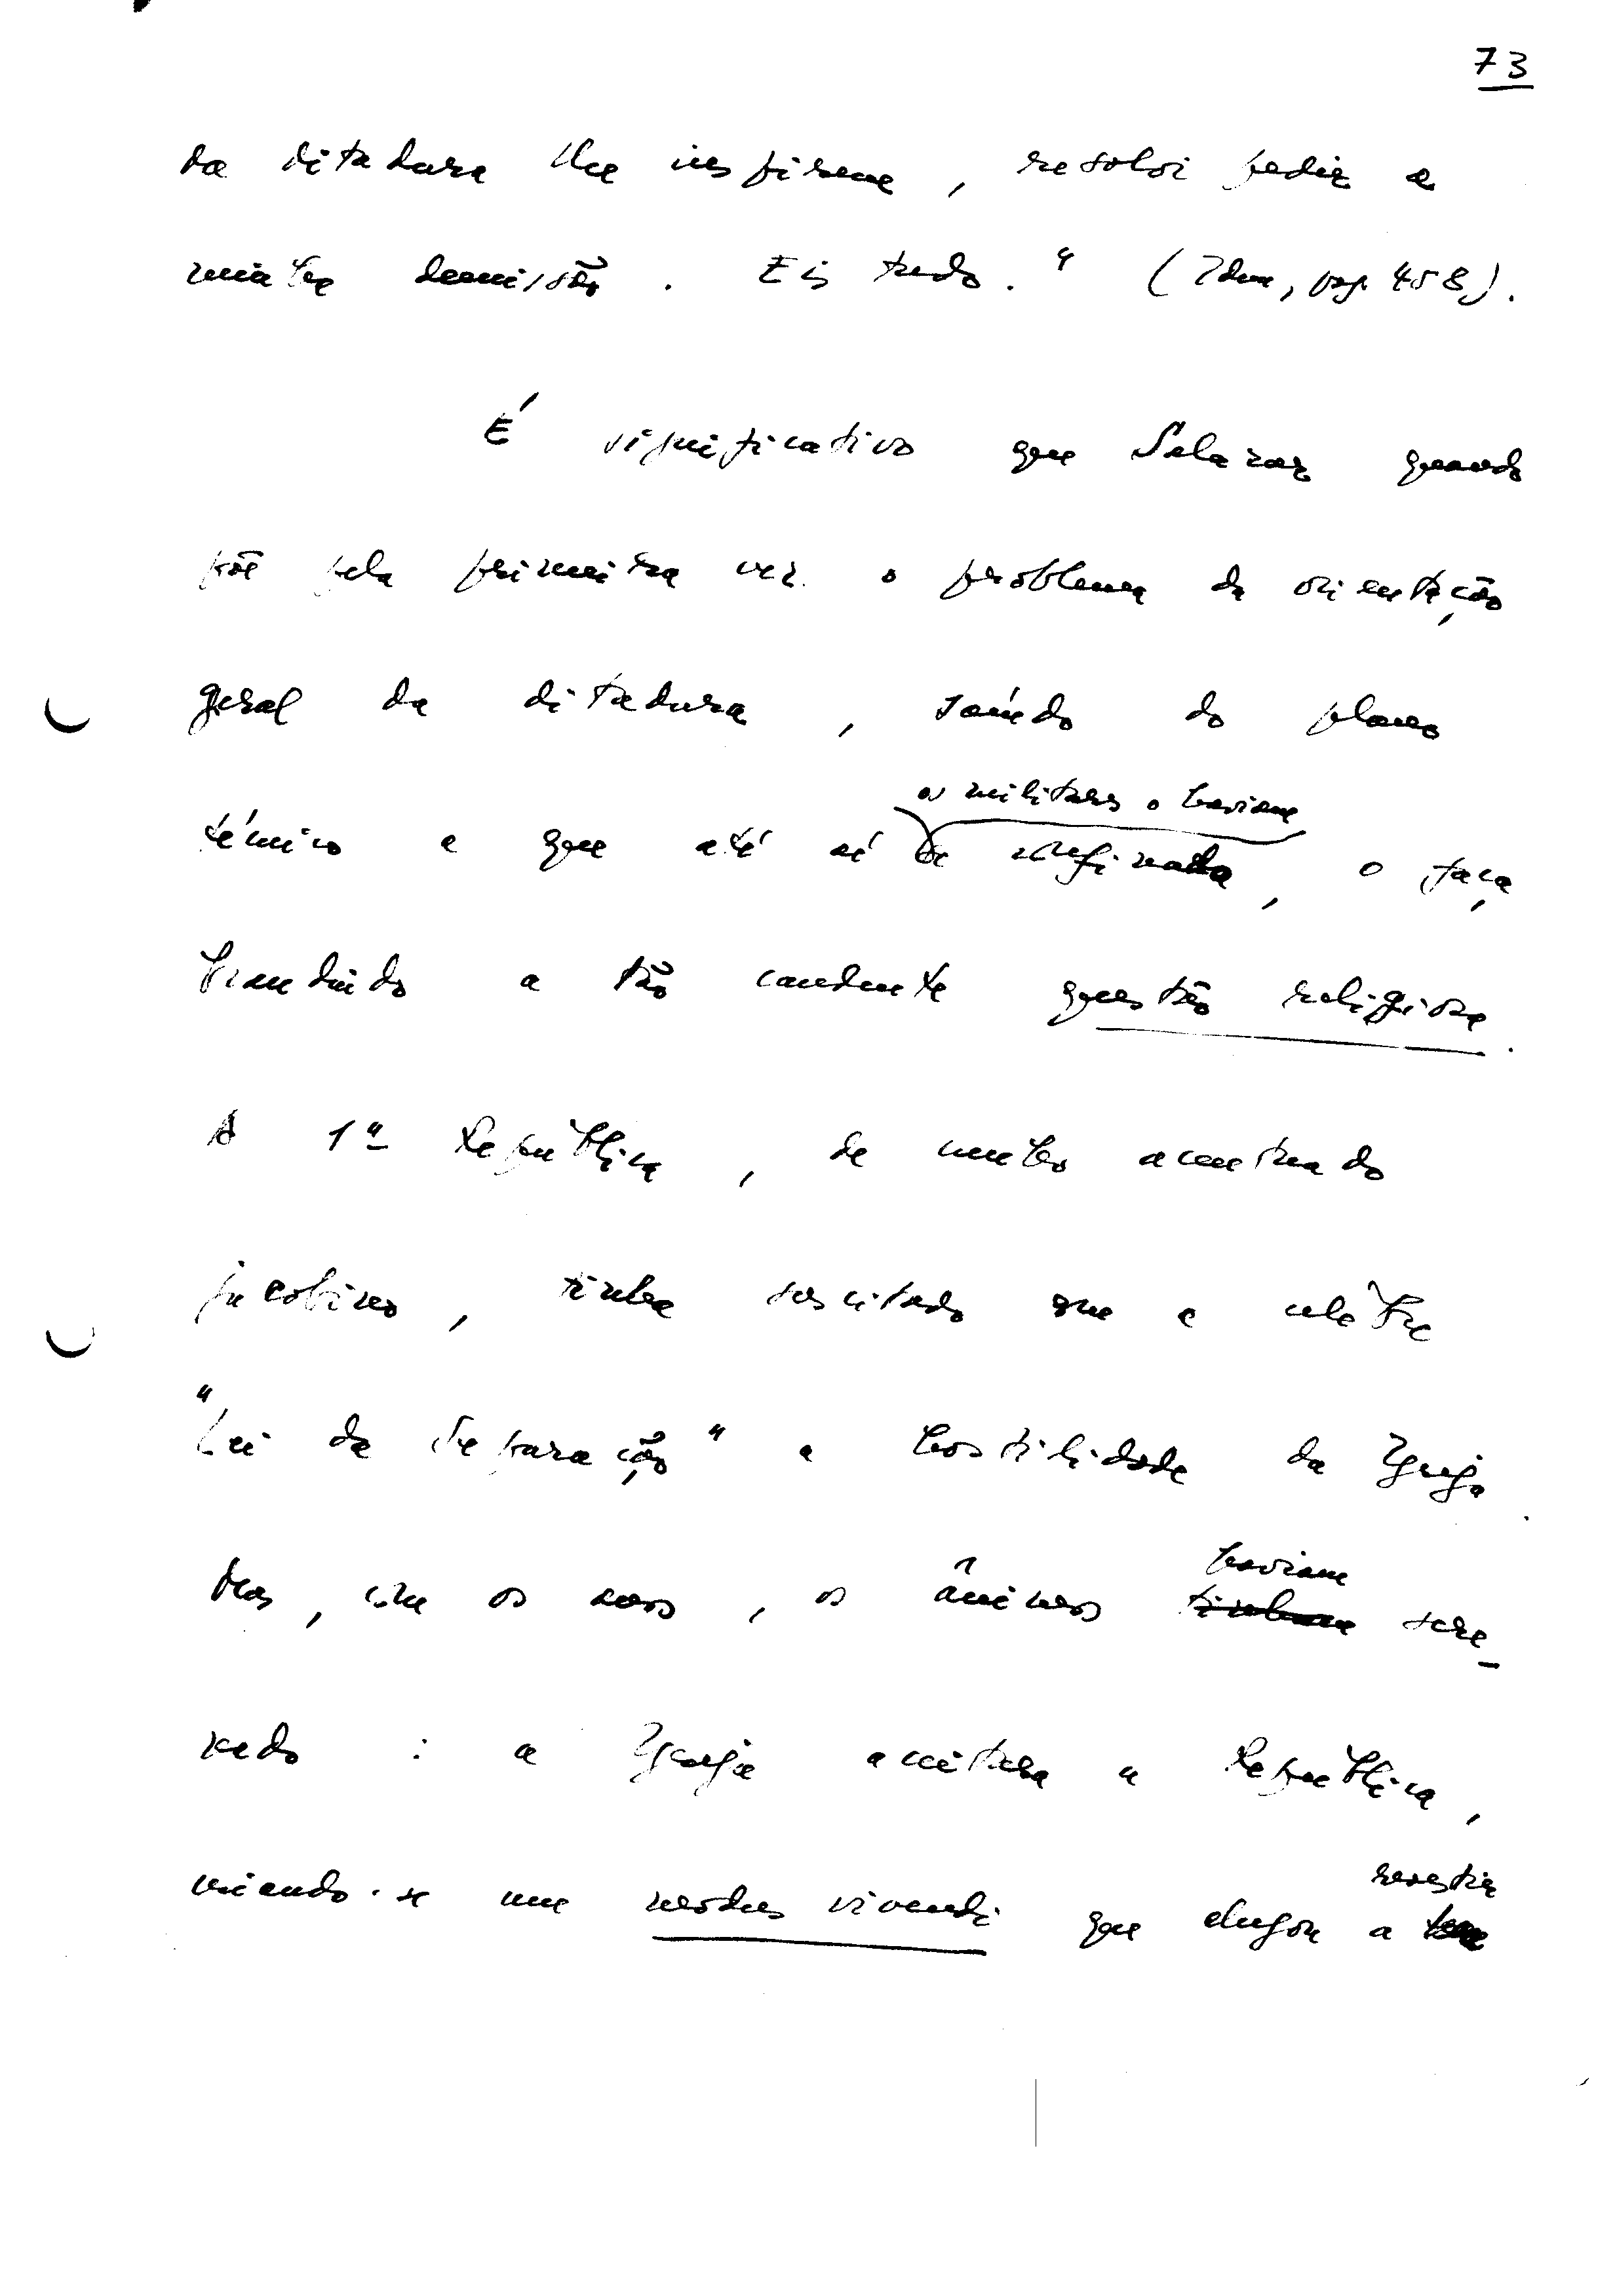 73
da ditadura lhe inspiram, resolvi pedir a
minha demissão. Eis tudo." (Idem, pag. 458).
É significativo que Salazar quando
põe pela primeira vez o problema da orientação
geral da ditadura, saíndo do plano
os militares o haviam
técnico a que até aí confinado, o faça
brandindo a tão candente questão religiosa.
A 1ª República, de cunho acentuado
jacobino, tinha suscitado com a célebre
"Lei da Separação" a hostilidade da Igreja.
Mas, com os anos, os ânimos
haviam
tinham sere-
nado : a Igreja aceitara a República,
criando-se um modus vivendi que chegou a
revestir